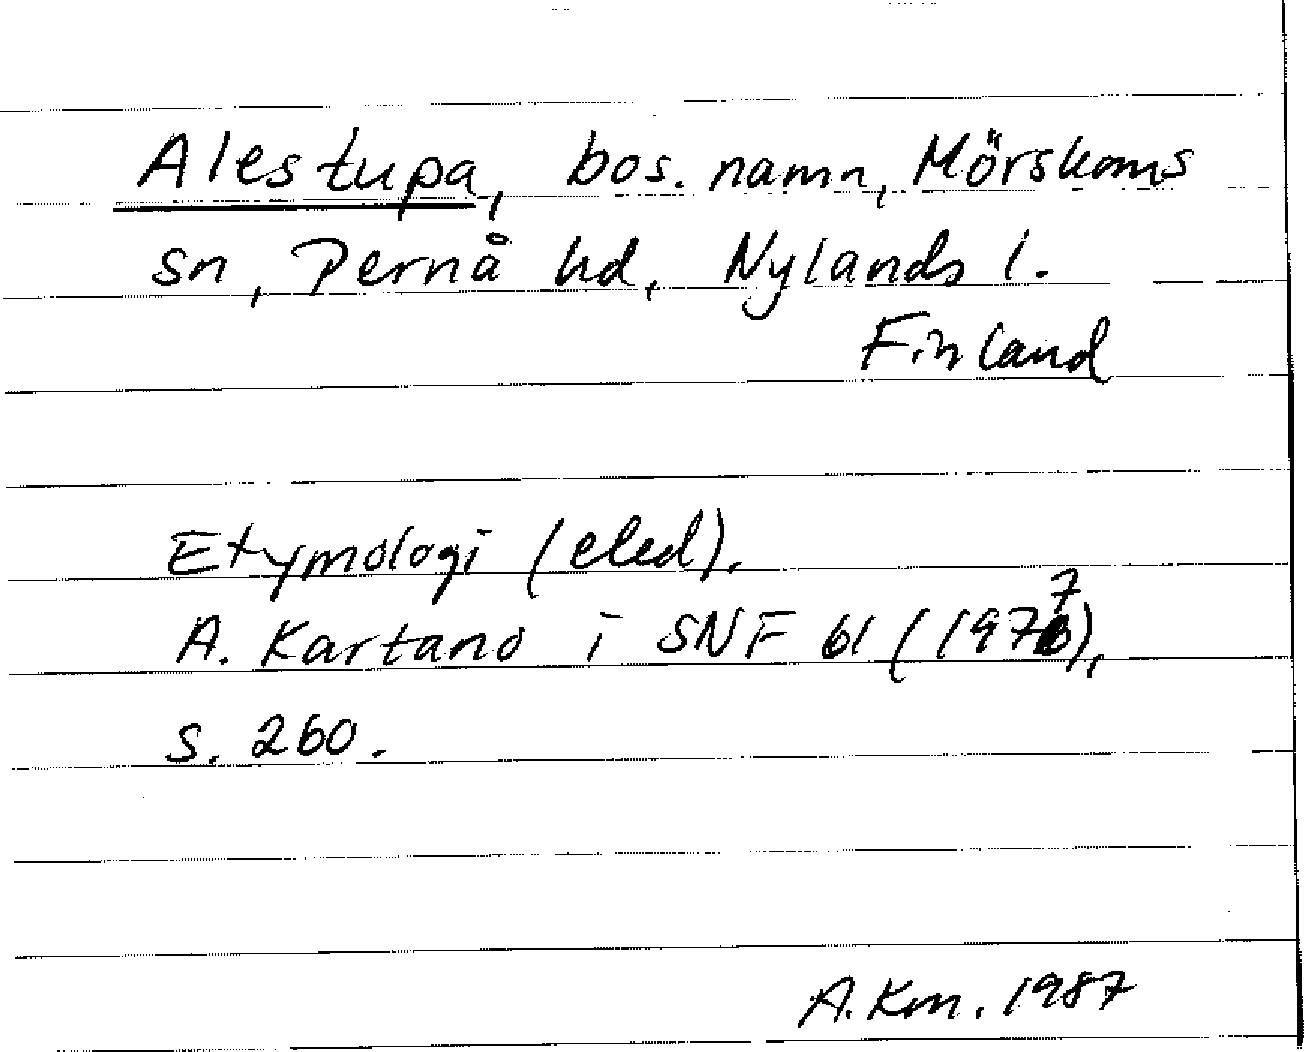 Alestupa, bos. namn, Mörskoms
sn, Pernå hd, Nylands l.
Finland
Etymologi (eled).
A. Kartano i SNF 61 (1977),
s. 260.
A. Km. 1987